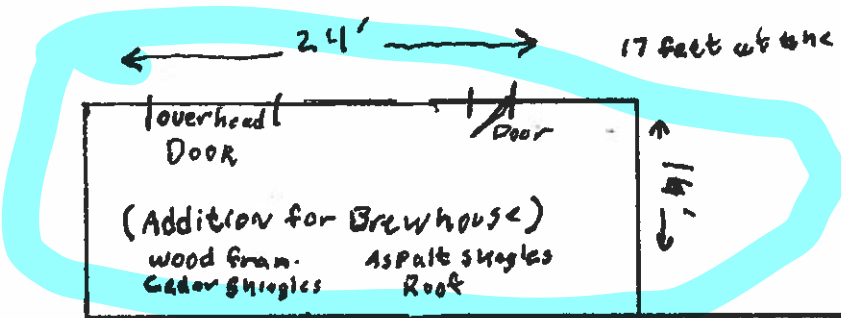 24'
17 feet at the
overhead
Door
Door
14'
(Addition for Brewhouse)
wood fram. Aspalt shingles
Cedar Shingles Roof